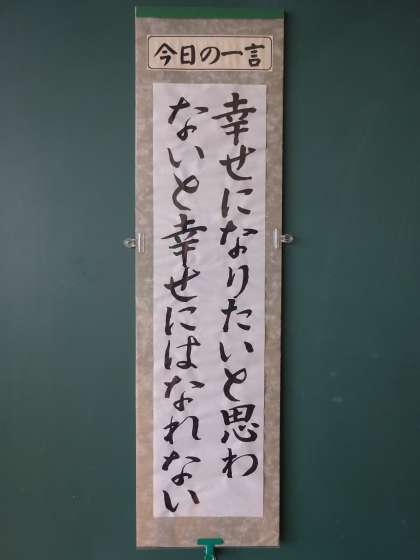 今日の一言
幸せになりたいと思わ
ないと幸せにはなれない